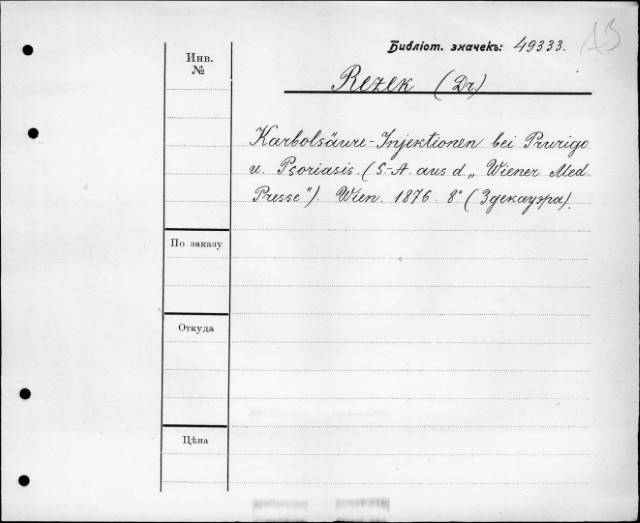 Библіот. значекъ: 49333.
Инв.
№
Rezek (Dr.)
Karbolsäure-Injektionen bei Prurigo
u. Psoriasis. (S-A. aus d „Wiener Med.
Presse"). Wien. 1876. 8° (Здекауэра).
По заказу
Откуда
Цѣна